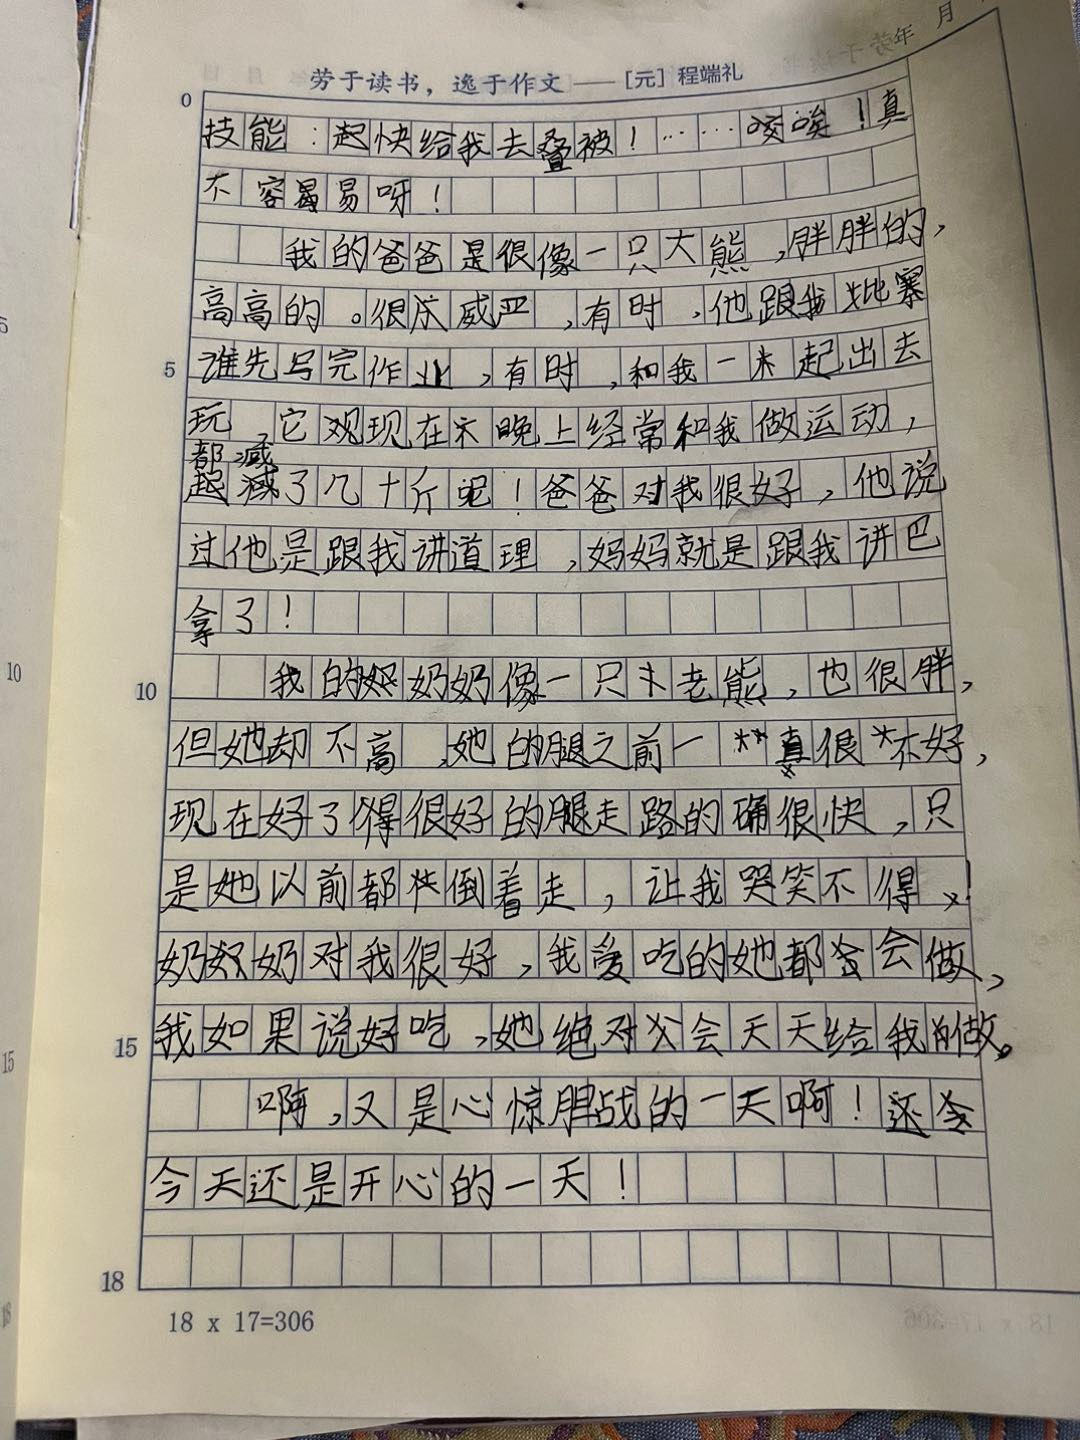 年 月
劳于读书，逸于作文——[元]程端礼
0
技能：起快给我去叠被！……唉！真
不容易呀！
我的爸爸是很像一只大熊，胖胖的，
高高的。很威严，有时，他跟我比赛
谁先写完作业，有时，和我一起出去
玩，它现在晚上经常和我做运动，
都减
5
减了几十斤呢！爸爸对我很好，他说
过他是跟我讲道理，妈妈就是跟我讲巴
拿了！
10
我的奶奶像一只老熊，也很胖，
但她却不高，她的腿之前一真很不好，
现在好了得很好的腿走路的确很快，只
是她以前都倒着走，让我哭笑不得！
奶奶对我很好，我爱吃的她都会做，
15
我如果说好吃，她绝对会天天给我做。
啊，又是心惊胆战的一天啊！还
今天还是开心的一天！
18
18 x 17=306
5
10
15
18